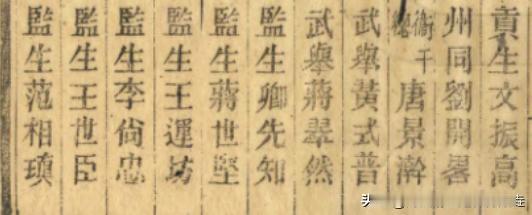 貢生文振高
州同劉開畧
衞千總唐景澣
武舉黃式普
武舉蔣翠然
監生卿先知
監生蔣世堅
監生王運坊
監生李尙忠
監生王世臣
監生范相瑱
头